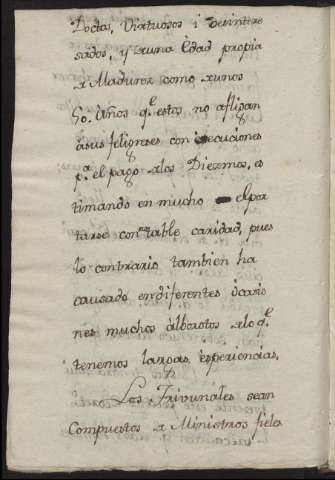 Doctos, Virtuosos i desintere
sados, y de una Edad propia
de Madurez como de unos
50. Años q.e estos no aflijan
â sus feligreses con execuciones
p.a el pago de los Diezmos, es
timando en mucho el por
tarse con notable caridad, pues
lo contrario tambien ha
causado en diferentes ocasio
nes muchos alborotos de lo q.e
tenemos largas, esperiencias,
Los Trivunales sean
Compuestos de Ministros fieles